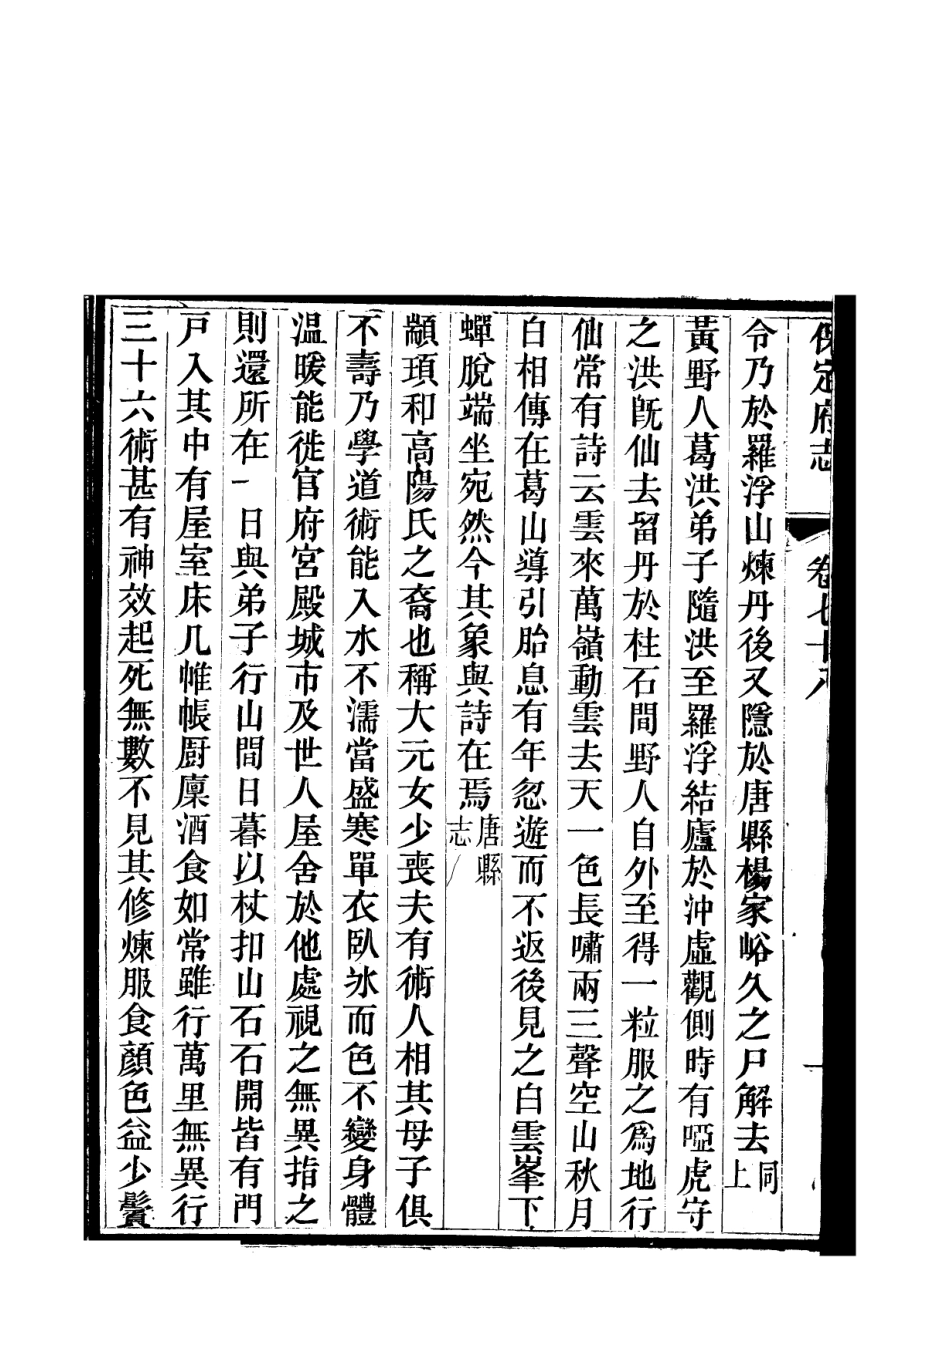 保定府志 卷七十八
令乃於羅浮山煉丹後又隱於唐縣楊家峪久之尸解去同上
黃野人葛洪弟子隨洪至羅浮結廬於沖虛觀側時有啞虎守
之洪既仙去留丹於柱石間野人自外至得一粒服之為地行
仙常有詩云雲來萬嶺動雲去天一色長嘯兩三聲空山秋月
白相傳在葛山導引胎息有年忽遊而不返後見之白雲峯下
蟬脫端坐宛然今其象與詩在焉唐縣志
顓頊和高陽氏之裔也稱大元女少喪夫有術人相其母子俱
不壽乃學道術能入水不濡當盛寒單衣臥氷而色不變身體
溫暖能徙官府宮殿城市及世人屋舍於他處視之無異指之
則還所在一日與弟子行山間日暮以杖扣山石石開皆有門
戶入其中有屋室床几帷帳厨廩酒食如常雖行萬里無異行
三十六術甚有神效起死無數不見其修煉服食顏色益少鬢